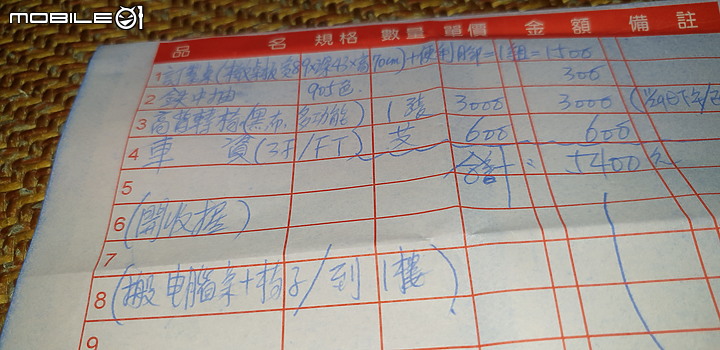 MOBILE01
品 名 規格 數量 單價 金額 備註
1 訂書桌(橡木桌板寬89x深43x高70cm)+便利腳=1組=1500
2 鉄中抽 905色 300
3 高背轉椅(黑布.多功能) 1張 3000 3000
4 車 資(3F/FT) 600 600
5 合計: 5400元
6 (開收据)
7
8 (搬电腦桌+椅子/到1樓)
9